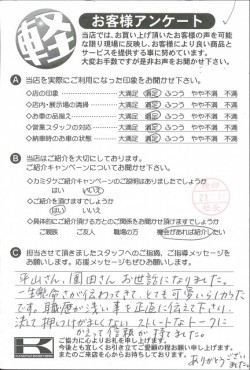 軽
お客様アンケート
当店では、お買い上げ頂いたお客様の声を可能
な限り現場に反映し、お客様により良い商品と
サービスを提供する事に努めています。
大変お手数ですが是非お声をお聞かせ下さい。
A 当店を実際にご利用になった印象をお聞かせ下さい。
◇店の印象 大満足 満足 ふつう やや不満 不満
◇店内・展示場の清掃 大満足 満足 ふつう やや不満 不満
◇お車の品揃え 大満足 満足 ふつう やや不満 不満
◇営業スタッフの対応 大満足 満足 ふつう やや不満 不満
◇納車時のお車の状態 大満足 満足 ふつう やや不満 不満
B 当店はご紹介を大切にしております。
ご紹介キャンペーンについてお聞かせ下さい。
◇カミタケご紹介キャンペーンのご説明はありましたでしょうか
はい いいえ
◇ご紹介を頂けますでしょうか
はい いいえ
◇具体的にご紹介頂ける方とのご関係をお聞かせ頂けますでしょうか
ご親族 ご友人 職場の方 機会があれば紹介したい
C 担当させて頂きましたスタッフへのご指摘、ご指導メッセージを
お願いします。応援メッセージもぜひお願いします。
平山さん、園田さん お世話になりました。
一生懸命さが伝わってきて、とても可愛いらしかった
です。職歴が浅い事を正直に伝えて下さり、
決して押し付けがましくない ストレートなトークに
かえって信頼が 持てました。
ありがとうございました。
ご協力に心よりお礼を申し上げます。
今後とも宜しくお引き立てご愛顧の程お願い申し上げます。
またのご来店を心からお待ちしております。